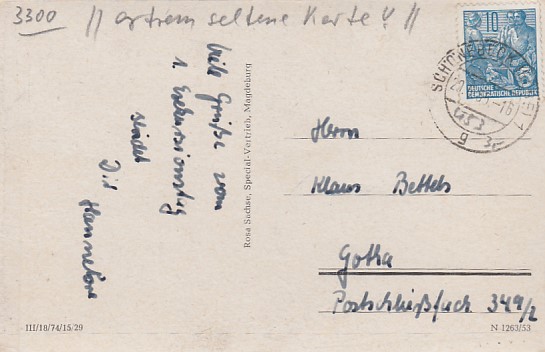 3300 // extrem seltene Karte! //
Viele Grüße vom
1. Exkursionstag
sendet
Dir
Hannelore
Rosa Sachse, Special-Vertrieb, Magdeburg
10
DEUTSCHE
DEMOKRATISCHE REPUBLIK
SCHÖNEBECK
1
g
Herrn
Klaus Bettels
Gotha
Postschließfach 349/2
III/18/74/15/29
N 1263/53